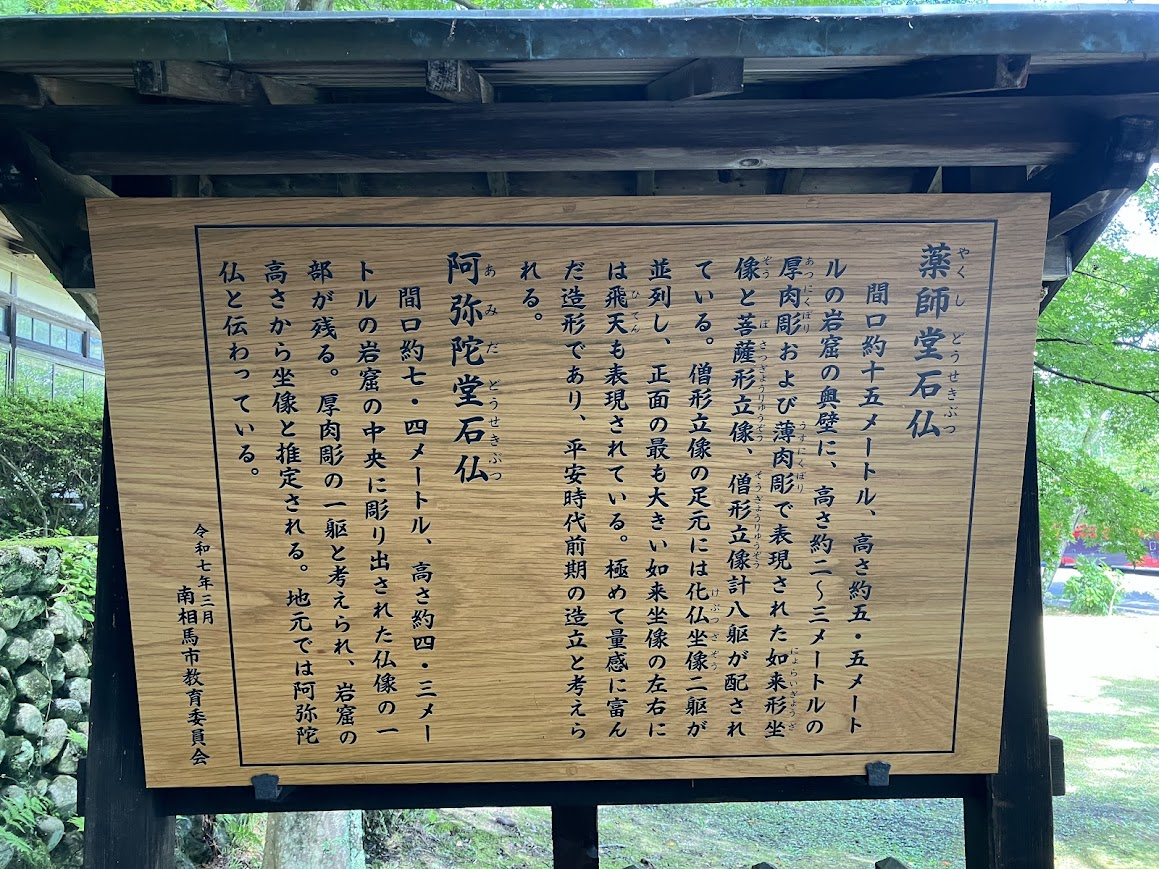 薬師堂石仏
間口約十五メートル、高さ約五・五メート
ルの岩窟の奥壁に、高さ約二〜三メートルの
厚肉彫および薄肉彫で表現された如来形坐
像と菩薩形立像、僧形立像計八躯が配され
ている。僧形立像の足元には化仏坐像二躯が
並列し、正面の最も大きい如来坐像の左右に
は飛天も表現されている。極めて量感に富ん
だ造形であり、平安時代前期の造立と考えら
れる。
阿弥陀堂石仏
間口約七・四メートル、高さ約四・三メー
トルの岩窟の中央に彫り出された仏像の一
部が残る。厚肉彫の一躯と考えられ、岩窟の
高さから坐像と推定される。地元では阿弥陀
仏と伝わっている。
令和七年三月
南相馬市教育委員会